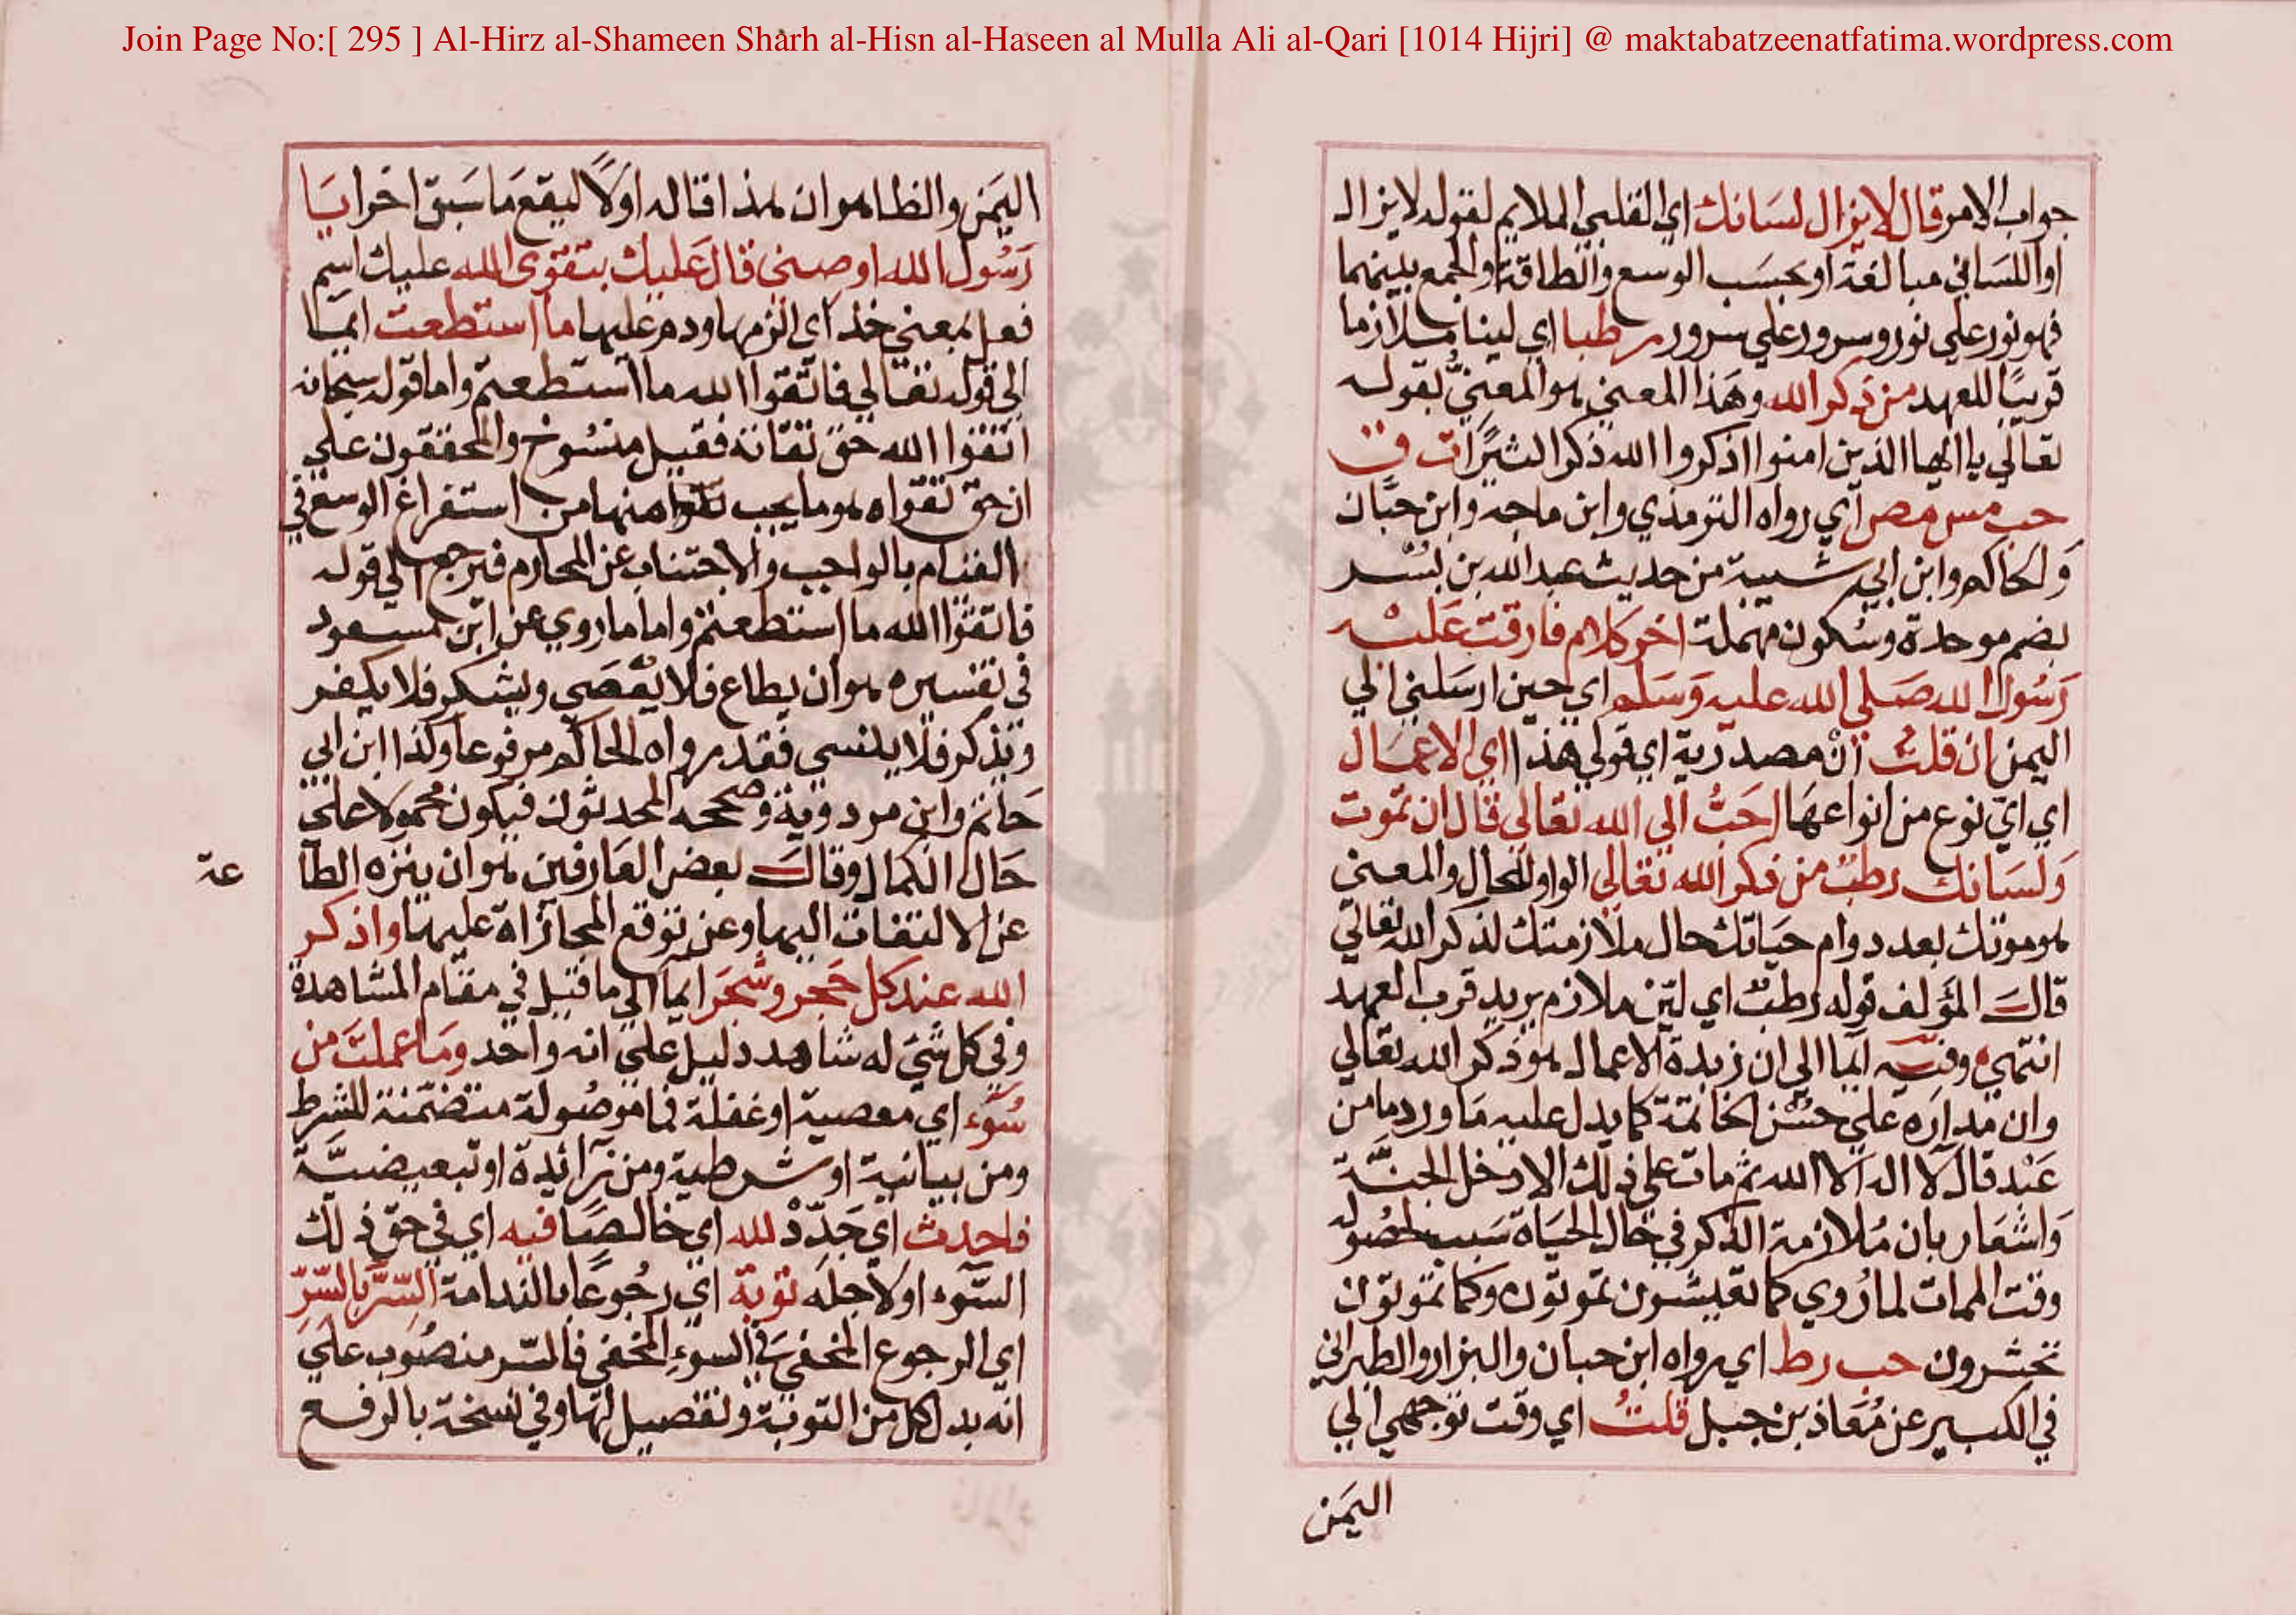 Join Page No:[ 295 ] Al-Hirz al-Shameen Sharh al-Hisn al-Haseen al Mulla Ali al-Qari [1014 Hijri] @ maktabatzeenatfatima.wordpress.com
جواب الامر قال لا يزال لسانك اي القلبي الملايم لقوله لا يزال
او اللساني مبالغة او بحسب الوسع والطاقة والجمع بينهما
فهو نور علي نور وسرور علي سرور رطبا اي لينا ملازما
قريبا للعهد من ذكر الله وهذا المعني هو المعنيّ بقوله
تعالي يا ايها الذين امنوا اذكروا الله ذكرا كثيرا ت ق
حب مس مص اي رواه الترمذي وابن ماجه وابن حبان
والحاكم وابن ابي شيبة من حديث عبد الله بن بسر
بضم موحدة وسكون مهملة اخر كلام فارقت عليه
رسول الله صلي الله عليه وسلم اي حين ارسلني الي
اليمن ان قلت ان مصدرية اي قولي هذا اي الاعمال
اي اي نوع من انواعها احب الي الله تعالي قال ان تموت
ولسانك رطب من ذكر الله تعالي الواو للحال والمعني
هو موتك بعد دوام حياتك حال ملازمتك لذكر الله تعالي
قال المؤلف قوله رطب اي لين ملازم يريد قرب العهد
انتهي وفيه ايما الي ان زبدة الاعمال هو ذكر الله تعالي
وان مداره علي حسن الخاتمة كما يدل عليه ما ورد ما من
عبد قال لا اله الا الله ثم مات علي ذلك الا دخل الجنة
واشعار بان ملازمة الذكر في حال الحياة سبب لحصوله
وقت الممات لما روي كما تعيشون تموتون وكما تموتون
تحشرون حب ر ط اي رواه ابن حبان والبزار والطبراني
في الكبير عن معاذ بن جبل قلت اي وقت توجهي الي
اليمن
اليمن والظاهر ان هذا قاله اولا ليقع ما سبق اخرا يا
رسول الله اوصني قال عليك بتقوي الله عليك اسم
فعل بمعني خذ اي الزمها ودم عليها ما استطعت ايما
الي قوله تعالي فاتقوا الله ما استطعتم واما قوله سبحانه
اتقوا الله حق تقاته فقيل منسوخ والمحققون علي
ان حق تقواه هو ما يجب منها من استفراغ الوسع في
القيام بالواجب والاجتناب عن المحارم فيرجع الي قوله
فاتقوا الله ما استطعتم واما ما روي عن ابن مسعود
في تفسيره هو ان يطاع فلا يعصي ويشكر فلا يكفر
ويذكر فلا ينسي فقد رواه الحاكم مرفوعا وكذا ابن ابي
حاتم وابن مردويه وصححه المحدثون فيكون محمولا علي
حال الكمال وقال بعض العارفين هو ان ينزه الطا
عة
عن الالتفات اليها وعن توقع المجازاة عليها واذكر
الله عند كل حجر وشجر ايما الي ما قيل في مقام المشاهدة
وفي كل شي له شاهد دليل علي انه واحد وما عملت من
سوء اي معصية او غفلة فما موصولة متضمنة للشرط
ومن بيانية او شرطية ومن زائدة او تبعيضية
فاحدث اي جدد لله اي خالصا فيه اي في حق ذلك
السوء او لاجله توبة اي رجوعا بالندامة السر بالسر
اي الرجوع المخفي في السوء المخفي فالسر منصوب علي
انه بدل كل من التوبة وتفصيل لها وفي نسخة بالرفع